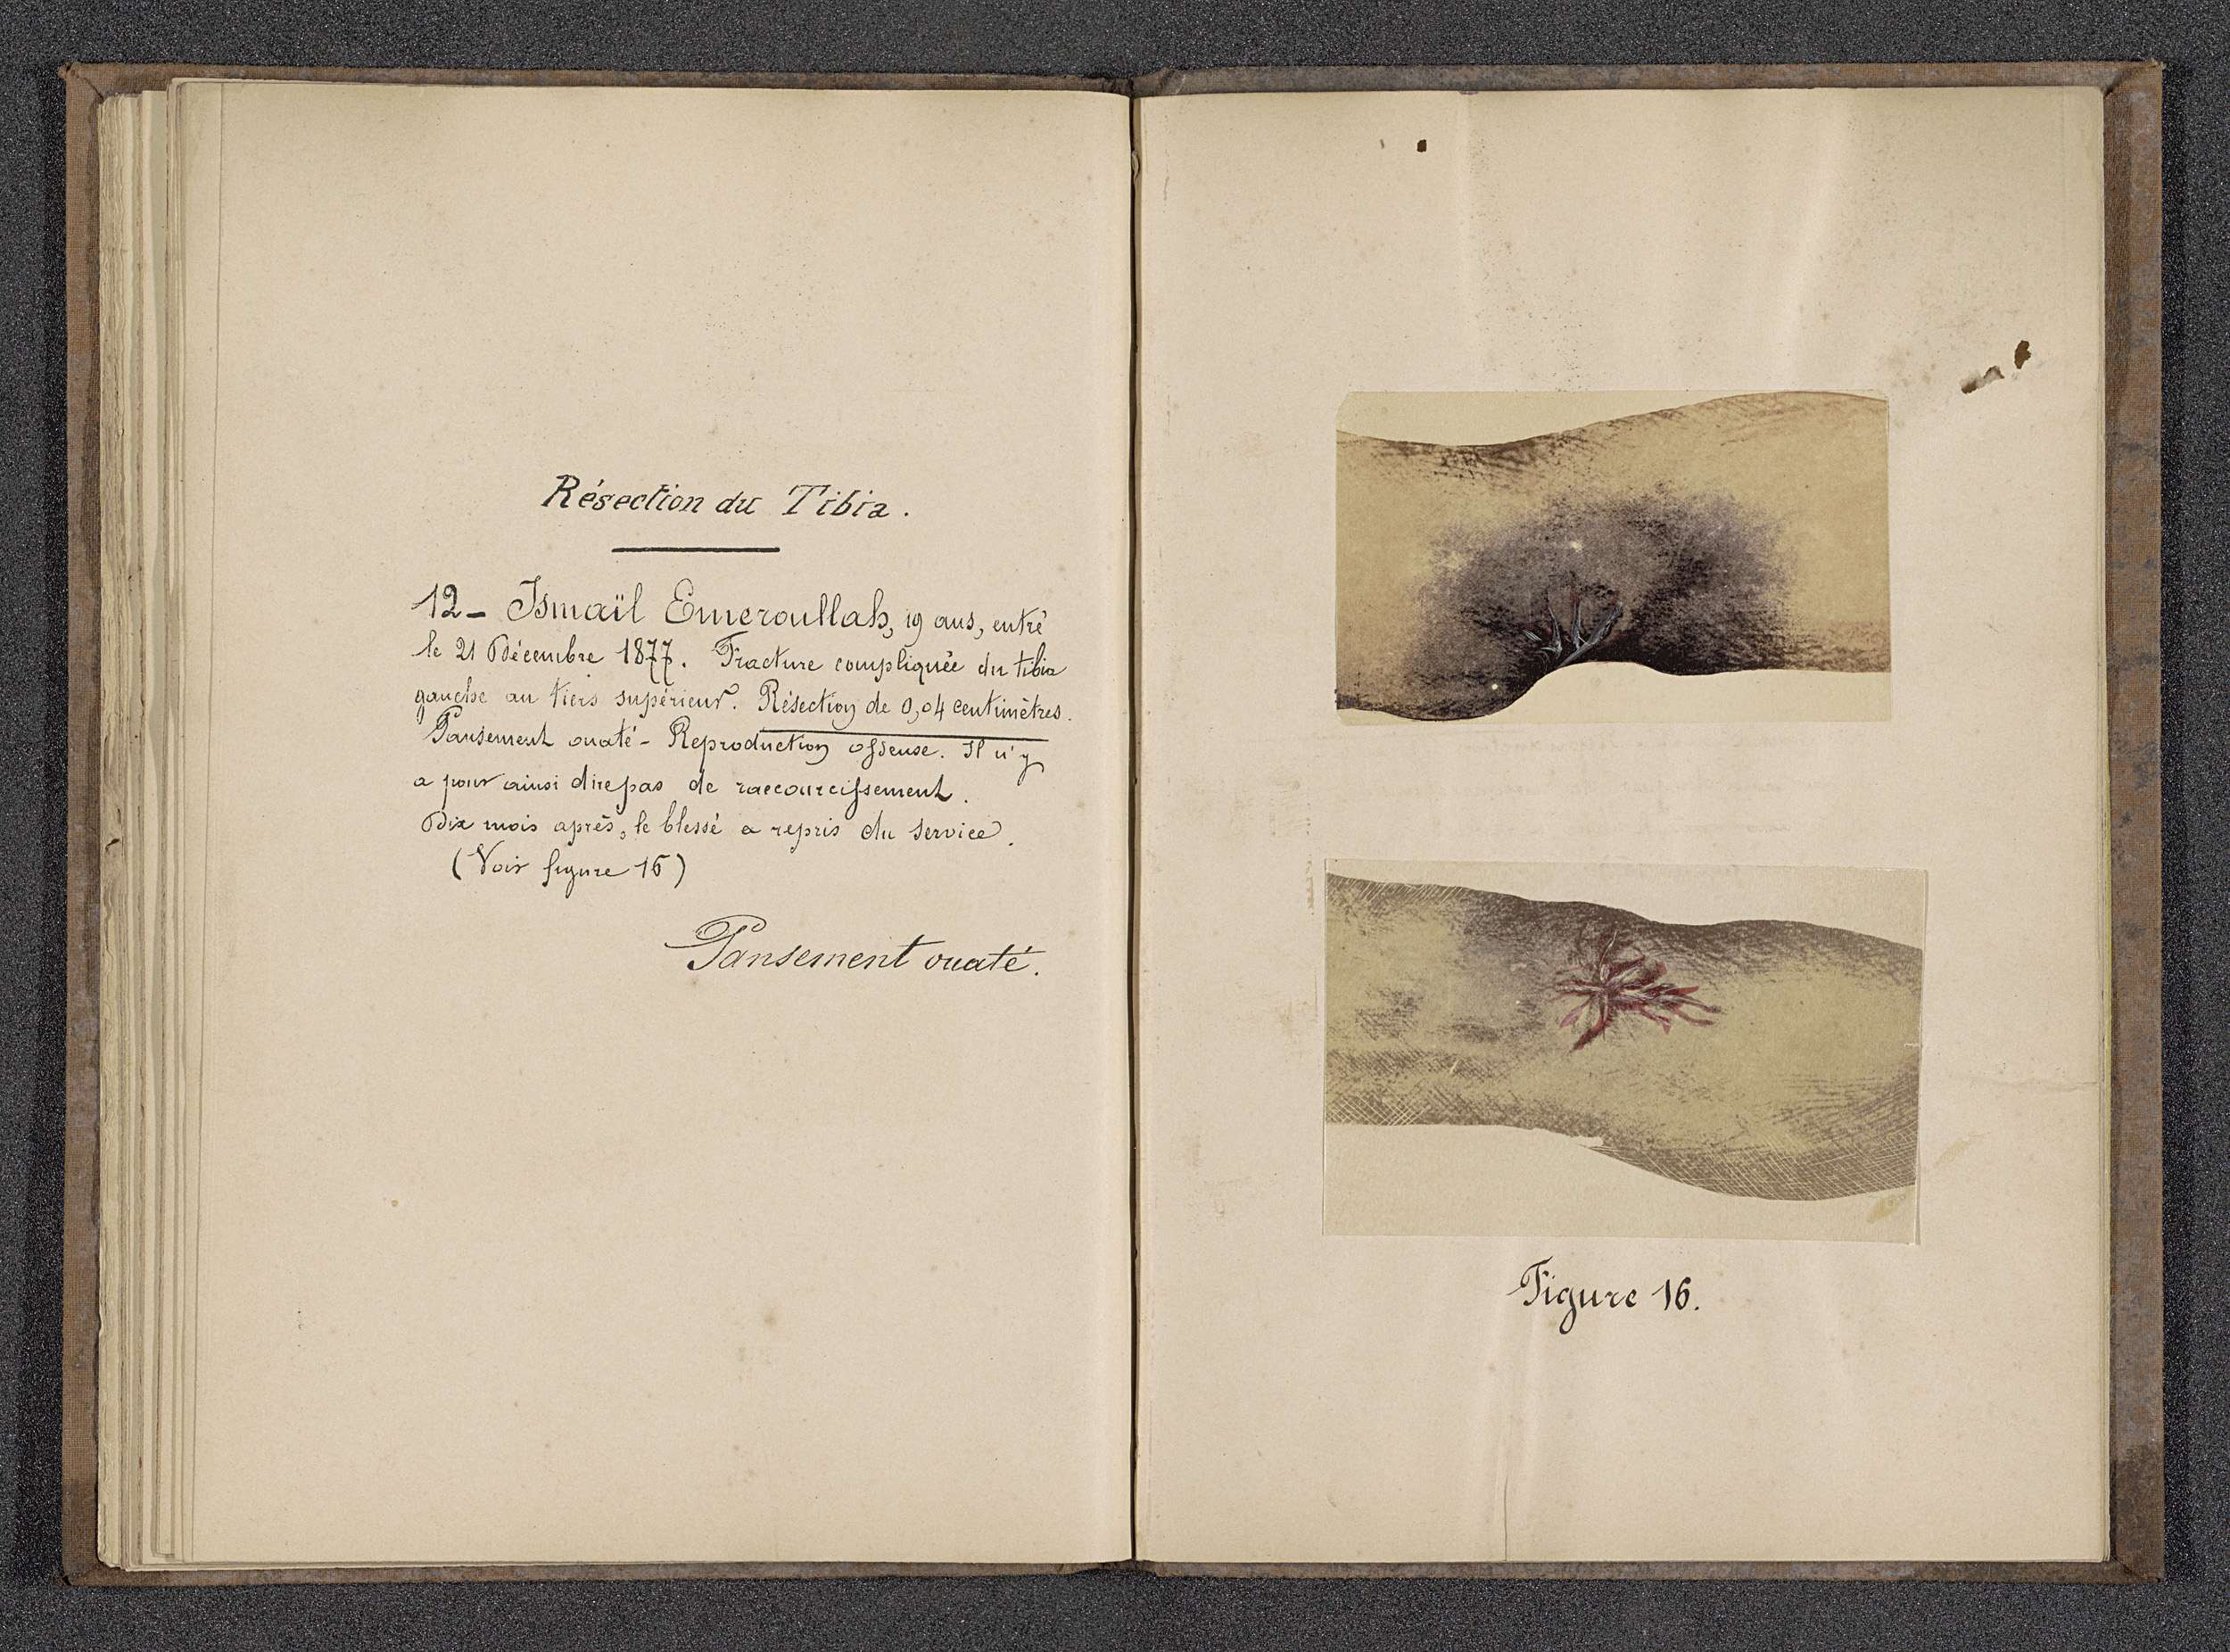 Résection du Tibia.
12 - Ismaïl Emeroullah, 19 ans, entré
le 21 Décembre 1877. Fracture compliquée du tibia
gauche au tiers supérieur. Résection de 0,04 centimètres.
Pansement ouaté - Reproduction osseuse. Il n'y
a pour ainsi dire pas de raccourcissement.
Dix mois après, le blessé a repris du service.
(Voir figure 16)
Pansement ouaté.
Figure 16.